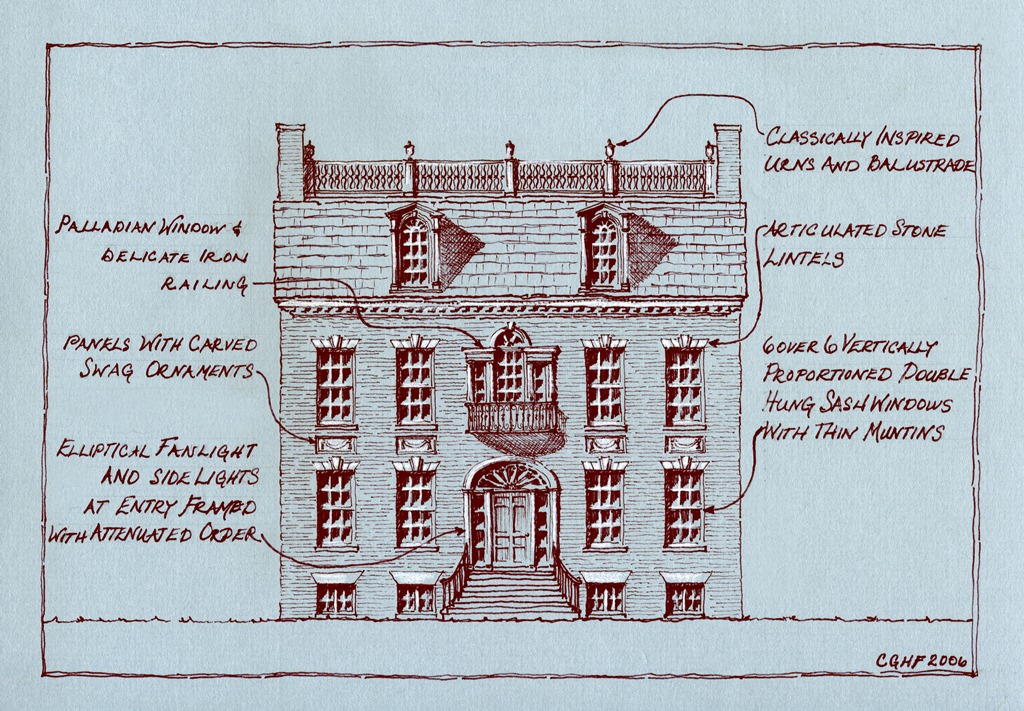 CLASSICALLY INSPIRED
URNS AND BALUSTRADE
PALLADIAN WINDOW &
DELICATE IRON
RAILING
ARTICULATED STONE
LINTELS
PANELS WITH CARVED
SWAG ORNAMENTS
6 OVER 6 VERTICALLY
PROPORTIONED DOUBLE
HUNG SASH WINDOWS
WITH THIN MUNTINS
ELLIPTICAL FANLIGHT
AND SIDE LIGHTS
AT ENTRY FRAMED
WITH ATTENUATED ORDER
CGHF 2006